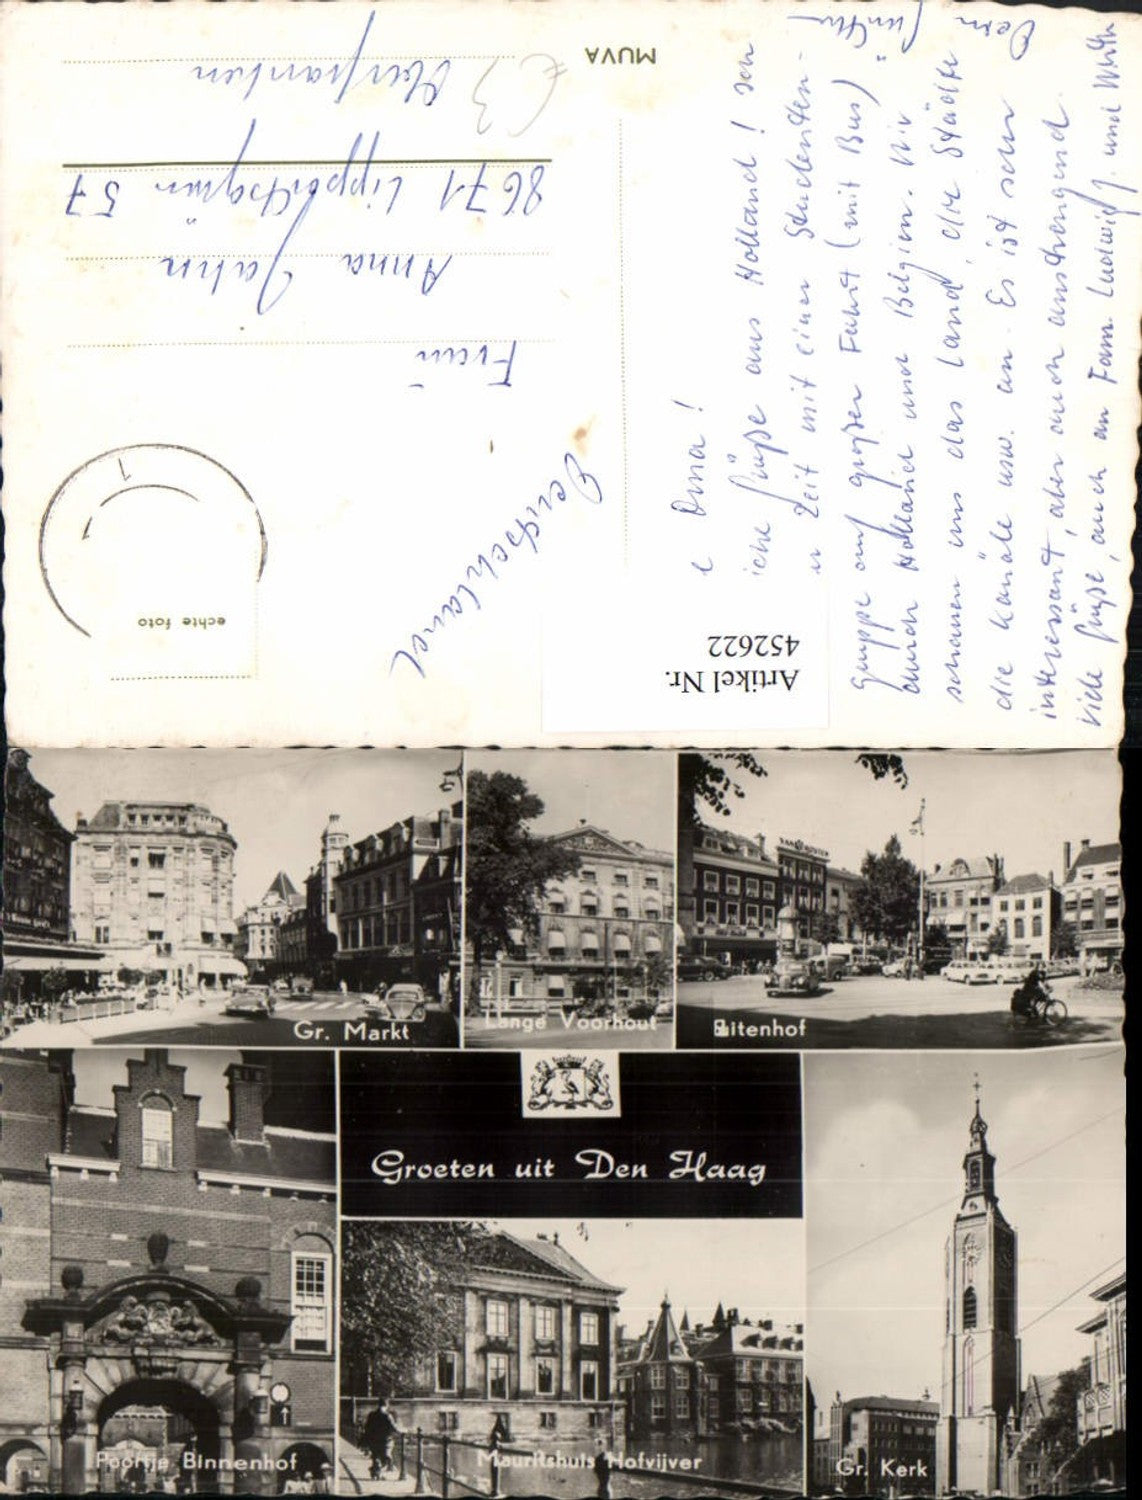 MUVA
echte foto
Deutschland
Frau
Anna Jahn
8671 Lippertsgrün 57
Oberfranken
€ 3
Artikel Nr.
452622
e Oma!
iche Grüße aus Holland! Son
er Zeit mit einer Studenten-
gruppe auf großer Fahrt (mit Bus)
durch Holland und Belgien. Wir
schauen uns das Land, die Städte
die Kanäle usw. an. Es ist sehr
interessant, aber auch anstrengend.
Viele Grüße, auch an Fam. Ludwig J. und
Dein
Günther
Gr. Markt
Lange Voorhout
Buitenhof
Groeten uit Den Haag
Poortje Binnenhof
Mauritshuis Hofvijver
Gr. Kerk